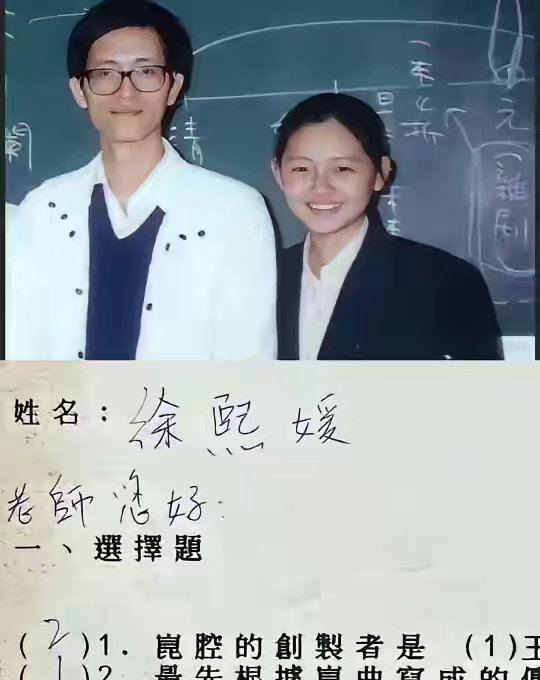 元
清
雜劇
姓名：徐熙媛
老師您好：
一、選擇題
(2)1. 崑腔的創製者是 (1)王
(1)2. 最先根據崑曲寫成的傳